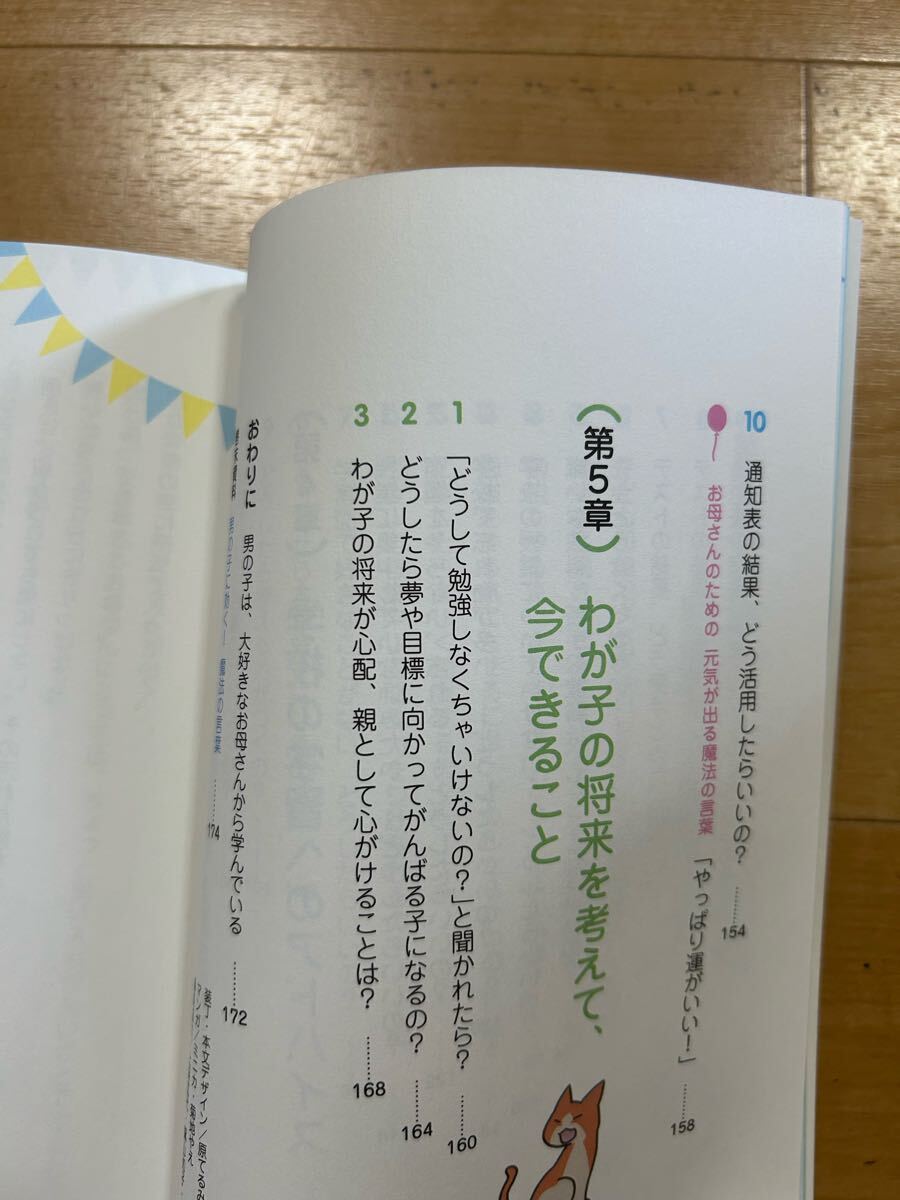 10 通知表の結果、どう活用したらいいの? ………154
お母さんのための 元気が出る魔法の言葉 「やっぱり運がいい!」 ………158
(第5章) わが子の将来を考えて、
今できること
1 「どうして勉強しなくちゃいけないの?」と聞かれたら? ………160
2 どうしたら夢や目標に向かってがんばる子になるの? ………164
3 わが子の将来が心配、親として心がけることは? ………168
おわりに 男の子は、大好きなお母さんから学んでいる ………172
男の子に効く! 魔法の言葉 ………174
装丁・本文デザイン/原てるみ
マンガ/ミニカ・菊地やえ